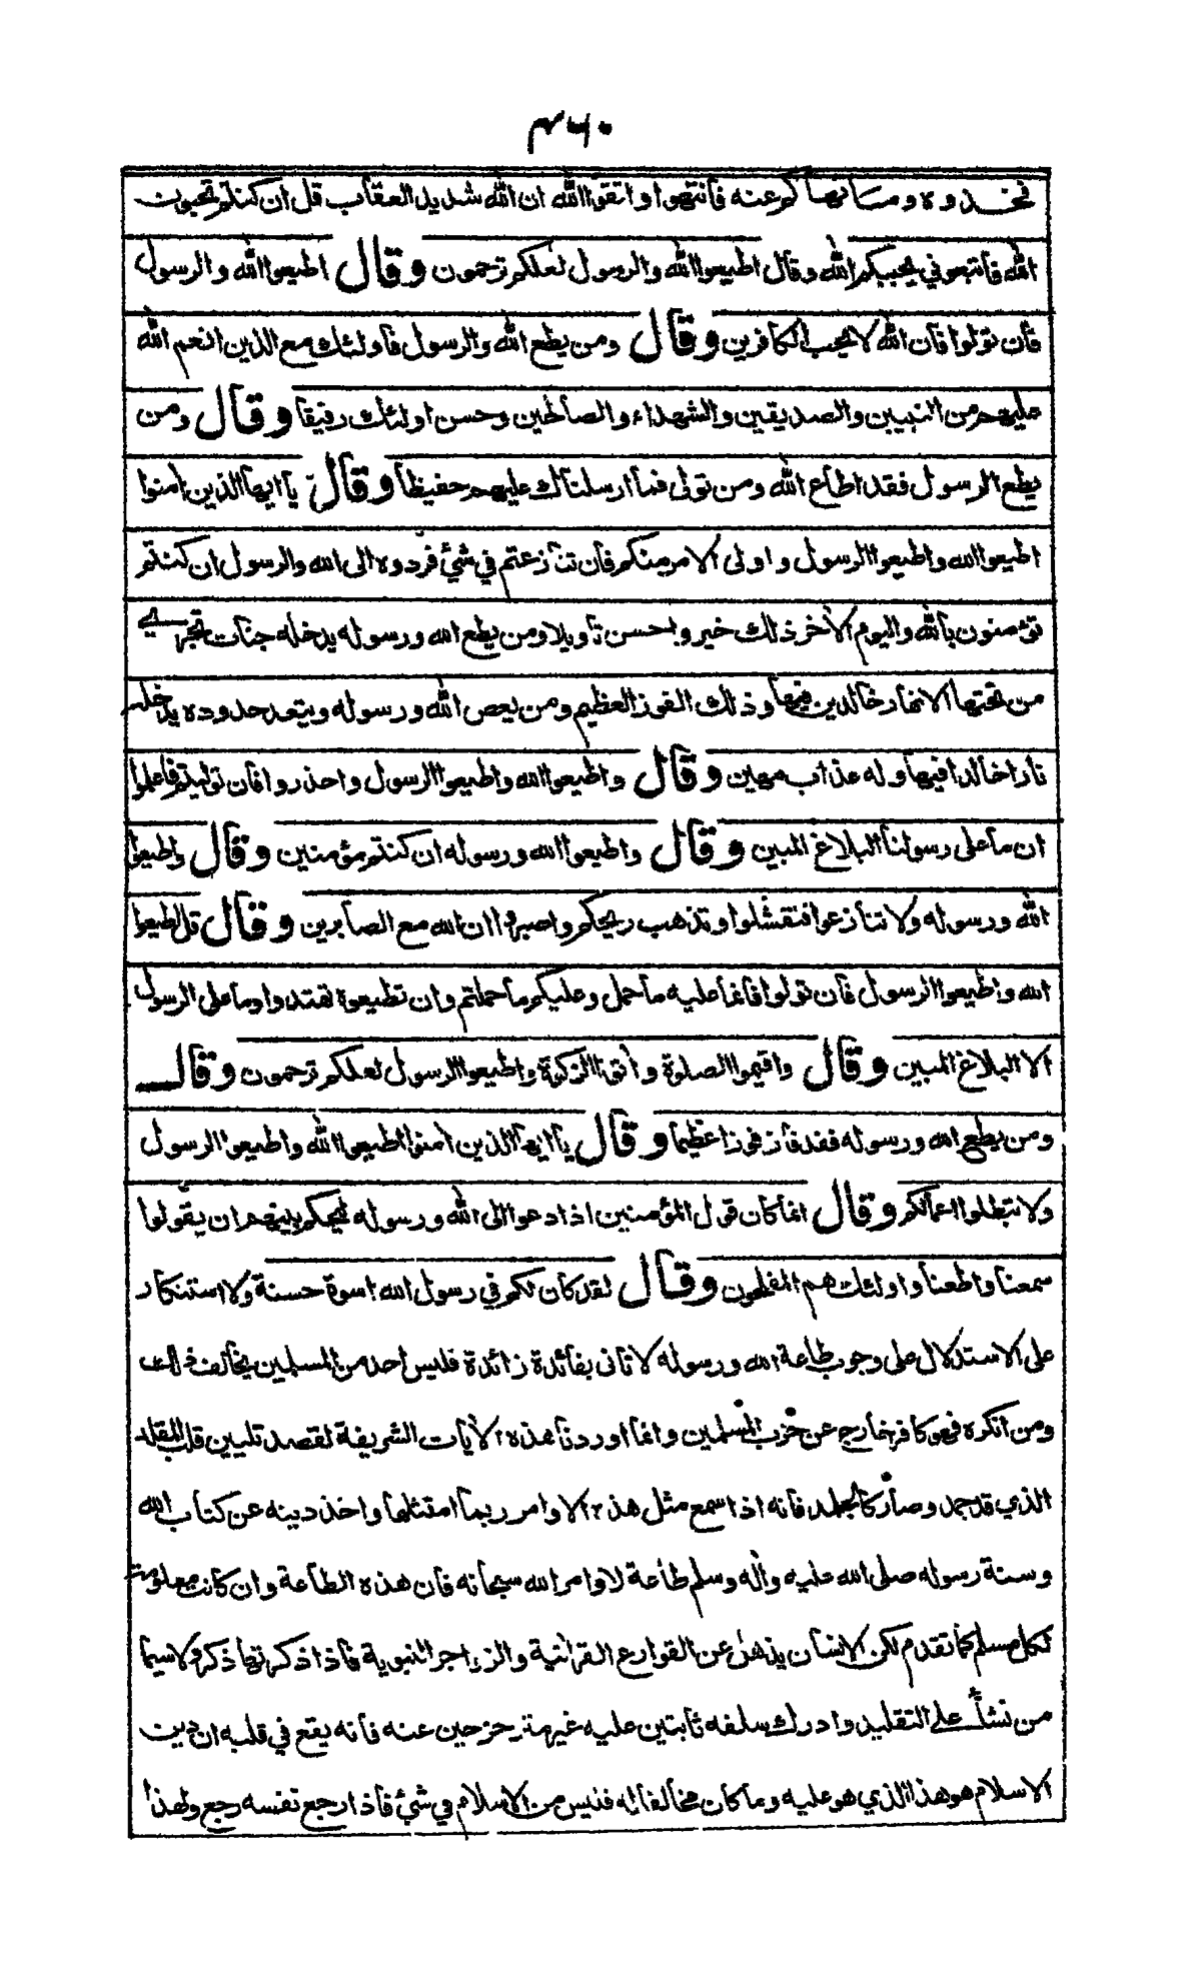 ٣٦٠
فخذوه وما نهاكم عنه فانتهوا واتقوا الله ان الله شديد العقاب قل ان كنتم تحبون
الله فاتبعوني يحببكم الله وقال اطيعوا الله والرسول لعلكم ترحمون وقال اطيعوا الله والرسول
فان تولوا فان الله لا يحب الكافرين وقال ومن يطع الله والرسول فاولئك مع الذين انعم الله
عليهم من النبيين والصديقين والشهداء والصالحين وحسن اولئك رفيقا وقال ومن
يطع الرسول فقد اطاع الله ومن تولى فما ارسلناك عليهم حفيظا وقال يا ايها الذين امنوا
اطيعوا الله واطيعوا الرسول واولى الامر منكم فان تنازعتم في شئ فردوه الى الله والرسول ان كنتم
تؤمنون بالله واليوم الاخر ذلك خير واحسن تاويلا ومن يطع الله ورسوله يدخله جنات تجري
من تحتها الانهار خالدين فيها وذلك الفوز العظيم ومن يعص الله ورسوله ويتعد حدوده يدخله
نارا خالدا فيها وله عذاب مهين وقال واطيعوا الله واطيعوا الرسول واحذروا فان توليتم فاعلموا
ان ما على رسولنا البلاغ المبين وقال واطيعوا الله ورسوله ان كنتم مؤمنين وقال واطيعوا
الله ورسوله ولا تنازعوا فتفشلوا وتذهب ريحكم واصبروا ان الله مع الصابرين وقال قل اطيعوا
الله واطيعوا الرسول فان تولوا فانما عليه ما حمل وعليكم ما حملتم وان تطيعوه تهتدوا وما على الرسول
الا البلاغ المبين وقال واقيموا الصلوة وأتوا الزكوة واطيعوا الرسول لعلكم ترحمون وقال
ومن يطع الله ورسوله فقد فاز فوزا عظيما وقال يا ايها الذين امنوا اطيعوا الله واطيعوا الرسول
ولا تبطلوا اعمالكم وقال انما كان قول المؤمنين اذا دعوا الى الله ورسوله ليحكم بينهم ان يقولوا
سمعنا واطعنا واولئك هم المفلحون وقال لقد كان لكم في رسول الله اسوة حسنة ولا استنكار
على الاستدلال على وجوب طاعة الله ورسوله لا تاتى بفائدة زائدة فليس احد من المسلمين يخالف ذلك
ومن انكره فهو كافر خارج عن حزب المسلمين وانما اوردنا هذه الآيات الشريفة لقصد تليين قلب المقلد
الذي قد جمد وصار كالجلمد فانه اذا سمع مثل هذه الاوامر ربما امتثلها واخذ دينه عن كتاب الله
وسنة رسوله صلى الله عليه وآله وسلم طاعة لاوامر الله سبحانه فان هذه الطاعة وان كانت معلومة
لكل مسلم كما تقدم لكن الانسان يذهل عن القوارع القرآنية والزواجر النبوية فاذا ذكر بها ذكر ولا سيما
من نشأ على التقليد وادرك سلفه ثابتين عليه غير متزحزحين عنه فانه يقع في قلبه ان دين
الاسلام هو هذا الذي هو عليه وما كان مخالفا له فليس من الاسلام في شئ فاذا راجع نفسه رجع ولهذا